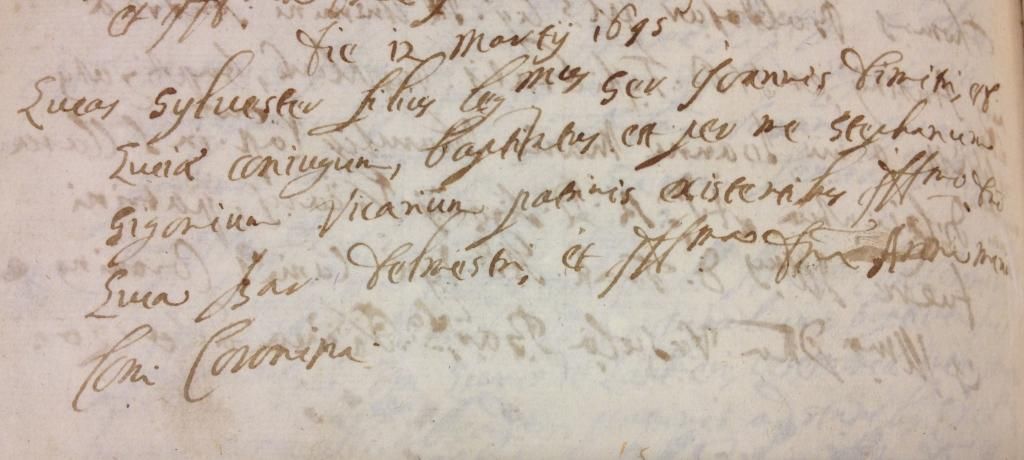 Die 12 Martij 1695
Lucas Sylvester filius leg.mus Ser Joannis Dimitri, et
Luciæ coniugum, baptizatus est per me Stephanum
Sigonium Vicarium patrinis existentibus Ill.mo D.no
Luca Bar Delmestri, et Ill.ma D.na
Coronina